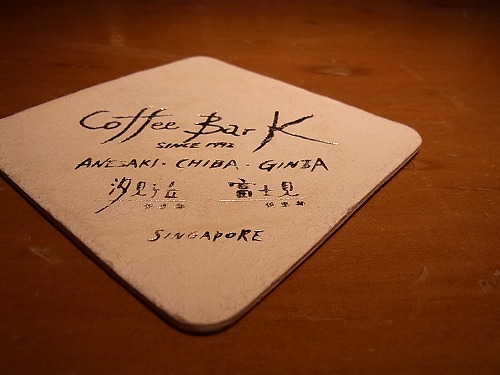 Coffee Bar K
SINCE 1992
ANESAKI · CHIBA · GINZA
汐見丘 富士見
倶楽部 倶楽部
SINGAPORE